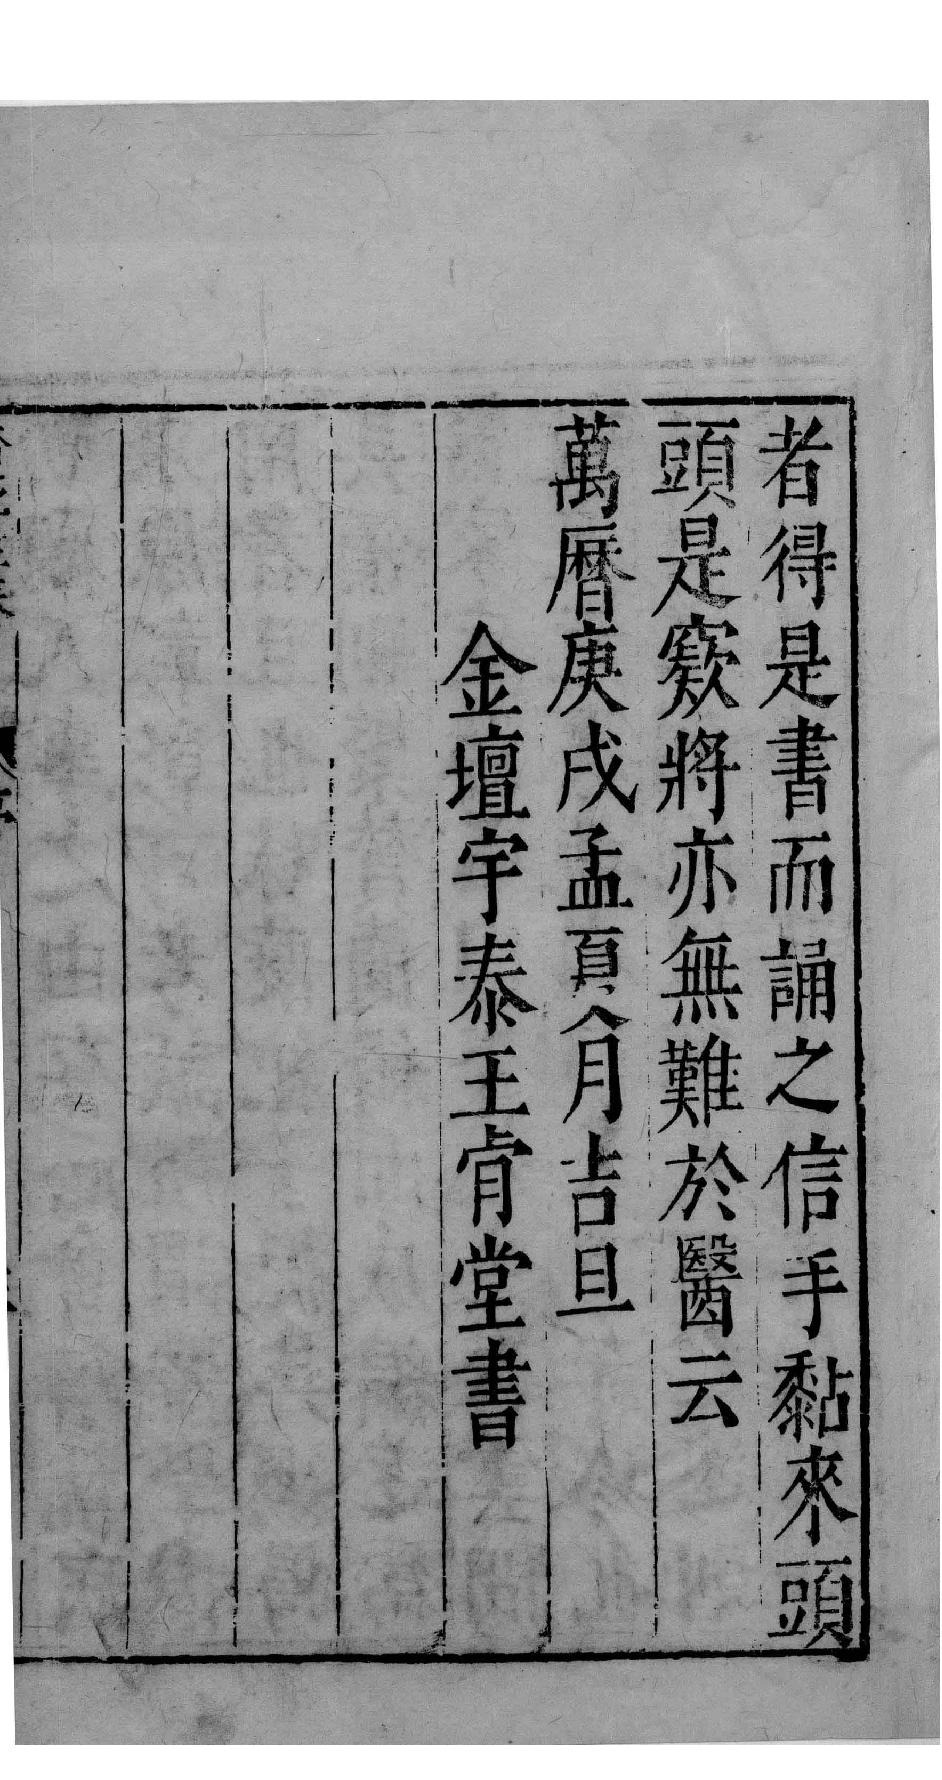 者得是書而誦之信手黏來頭
頭是窾將亦無難於醫云
萬曆庚戌孟夏月吉旦
金壇宇泰王肯堂書